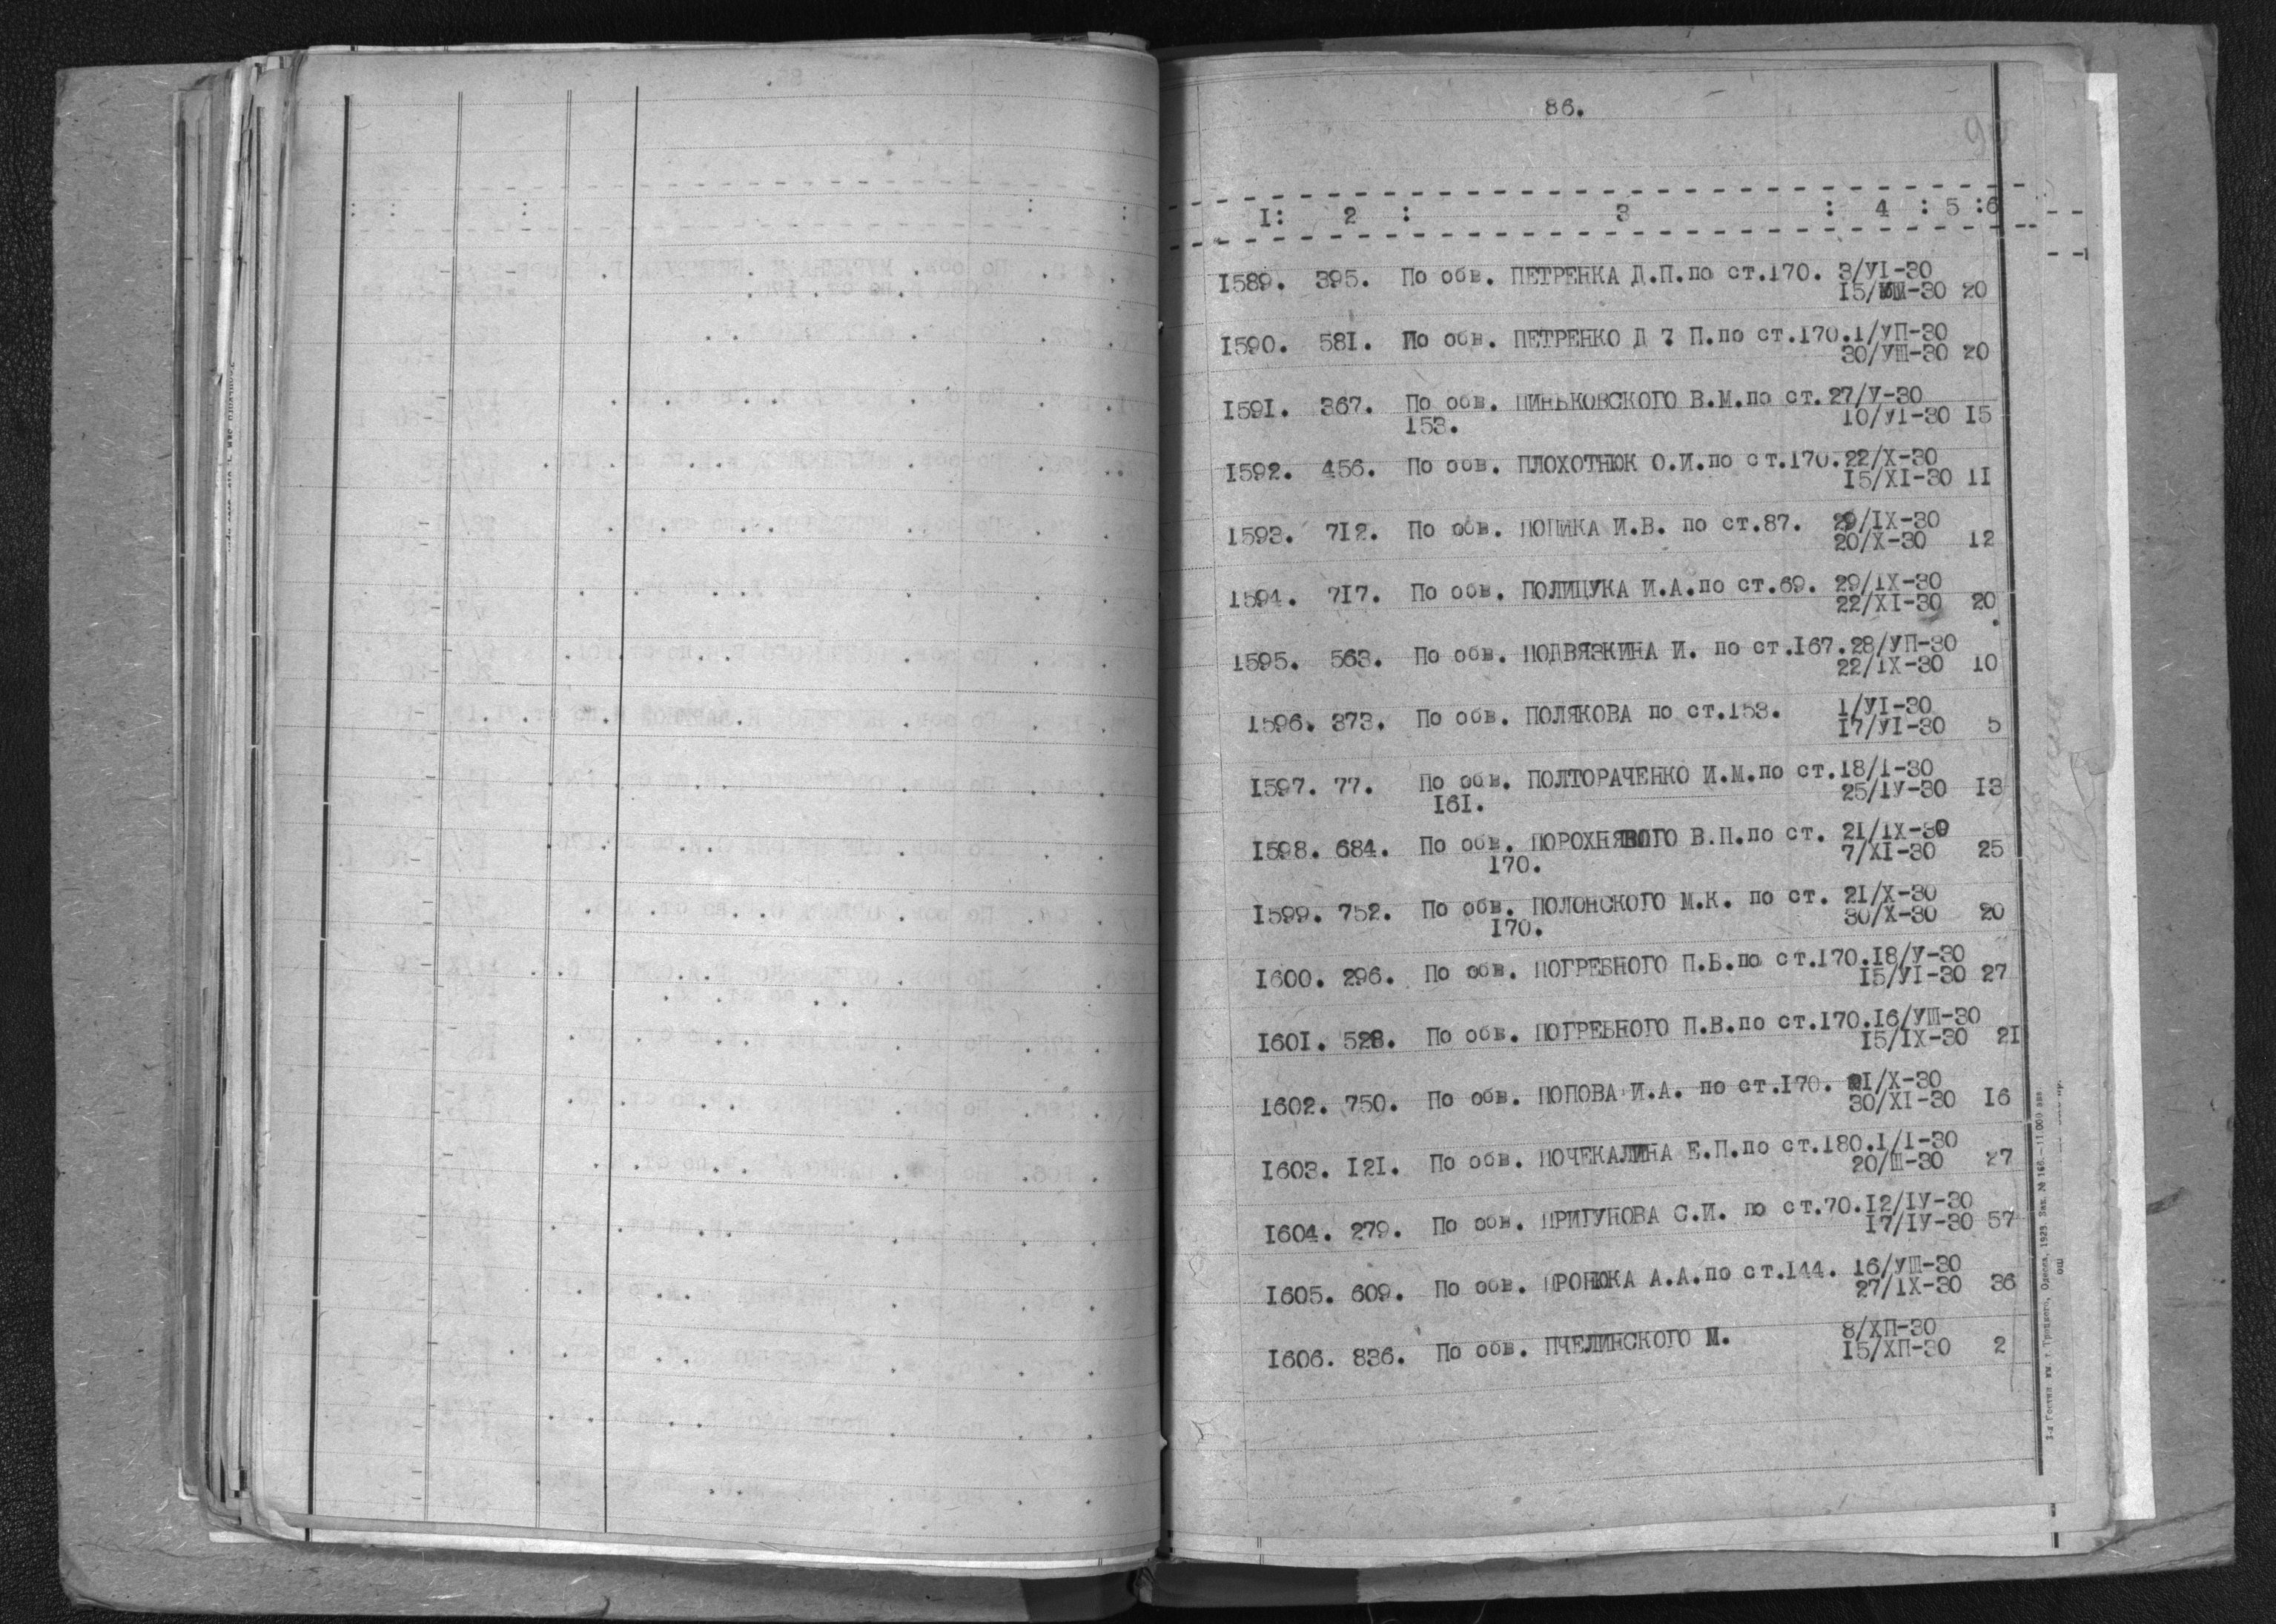 86.
1: 2 : 3 : 4 : 5 :6
1589. 395. По обв. ПЕТРЕНКА Д.П.по ст.170. 3/УІ-30
15/ -30 20
1590. 581. По обв. ПЕТРЕНКО Д 7 П.по ст.170.1/УП-30
30/УШ-30 20
1591. 367. По обв. ПИНЬКОВСКОГО В.М.по ст.27/У-30
153. 10/УІ-30 15
1592. 456. По обв. ПЛОХОТНЮК О.И.по ст.170.22/Х-30
15/ХІ-30 11
1593. 712. По обв. ПОПИКА И.В. по ст.87. 29/ІХ-30
20/Х-30 12
1594. 717. По обв. ПОЛИЦУКА И.А.по ст.69. 29/ІХ-30
22/ХІ-30 20.
1595. 563. По обв. ПОДВЯЗКИНА И. по ст.167.28/УП-30
22/ІХ-30 10
1596. 373. По обв. ПОЛЯКОВА по ст.153. 1/УІ-30
17/УІ-30 5
1597. 77. По обв. ПОЛТОРАЧЕНКО И.М.по ст.18/І-30
161. 25/ІУ-30 13
1598. 684. По обв. В.П.по ст. 21/ІХ-30
170. 7/ХІ-30 25
1599. 752. По обв. ПОЛОНСКОГО М.К. по ст. 21/Х-30
170. 30/Х-30 20
1600. 296. По обв. ПОГРЕБНОГО П.Б.по ст.170.18/У-30
15/УІ-30 27
1601. 528. По обв. ПОГРЕБНОГО П.В.по ст.170.16/УШ-30
15/ІХ-30 21
1602. 750. По обв. ПОПОВА И.А. по ст.170. 21/Х-30
30/ХІ-30 16
1603. 121. По обв. ПОЧЕКАЛИНА Е.П.по ст.180.1/І-30
20/Ш-30 27
1604. 279. По обв. ПРИГУНОВА С.И. по ст.70.12/ІУ-30
17/ІУ-30 57
1605. 609. По обв. ПРОНЮКА А.А.по ст.144. 16/УШ-30
27/ІХ-30 36
1606. 836. По обв. ПЧЕЛИНСКОГО М. 8/ХП-30
15/ХП-30 2